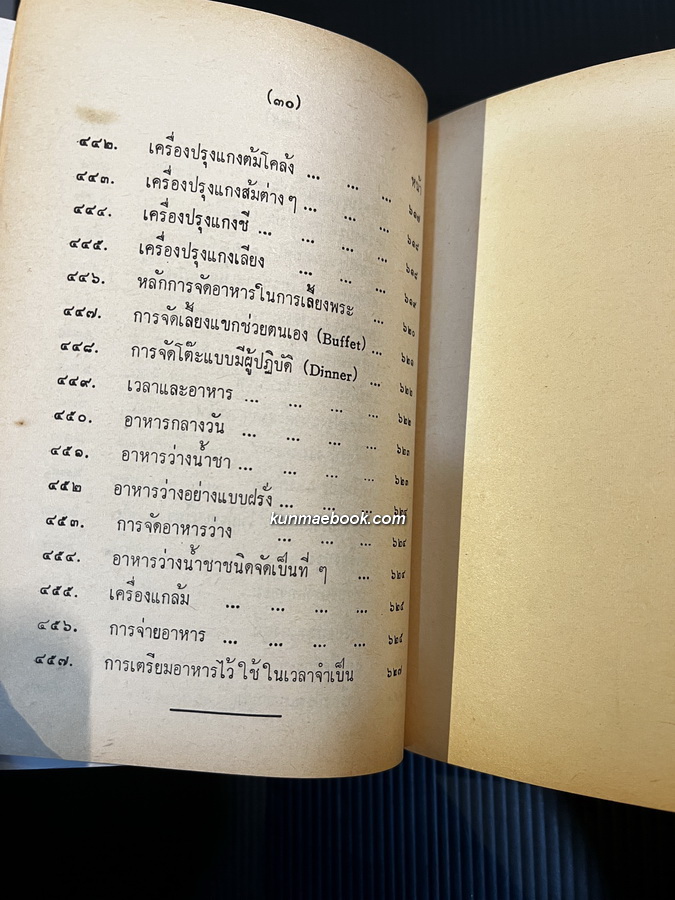 (๓๐)
หน้า
๔๔๒. เครื่องปรุงแกงต้มโคล้ง ... ... ... ๖๑๗
๔๔๓. เครื่องปรุงแกงส้มต่าง ๆ ... ... ... ๖๑๘
๔๔๔. เครื่องปรุงแกงชี ... ... ... ... ๖๑๘
๔๔๕. เครื่องปรุงแกงเลียง ... ... ... ๖๑๙
๔๔๖. หลักการจัดอาหารในการเลี้ยงพระ ... ๖๒๐
๔๔๗. การจัดเลี้ยงแขกช่วยตนเอง (Buffet) ... ๖๒๑
๔๔๘. การจัดโต๊ะแบบมีผู้ปฏิบัติ (Dinner) ... ๖๒๒
๔๔๙. เวลาและอาหาร ... ... ... ... ๖๒๒
๔๕๐. อาหารกลางวัน ... ... ... ... ๖๒๓
๔๕๑. อาหารว่างน้ำชา ... ... ... ... ๖๒๓
๔๕๒ อาหารว่างอย่างแบบฝรั่ง ... ... ... ๖๒๔
kunmaebook.com
๔๕๓. การจัดอาหารว่าง ... ... ... ๖๒๔
๔๕๔. อาหารว่างน้ำชาชนิดจัดเป็นที่ ๆ ... ๖๒๔
๔๕๕. เครื่องแกล้ม ... ... ... ... ๖๒๕
๔๕๖. การจ่ายอาหาร ... ... ... ... ๖๒๕
๔๕๗. การเตรียมอาหารไว้ ใช้ ในเวลาจำเป็น ๖๒๗